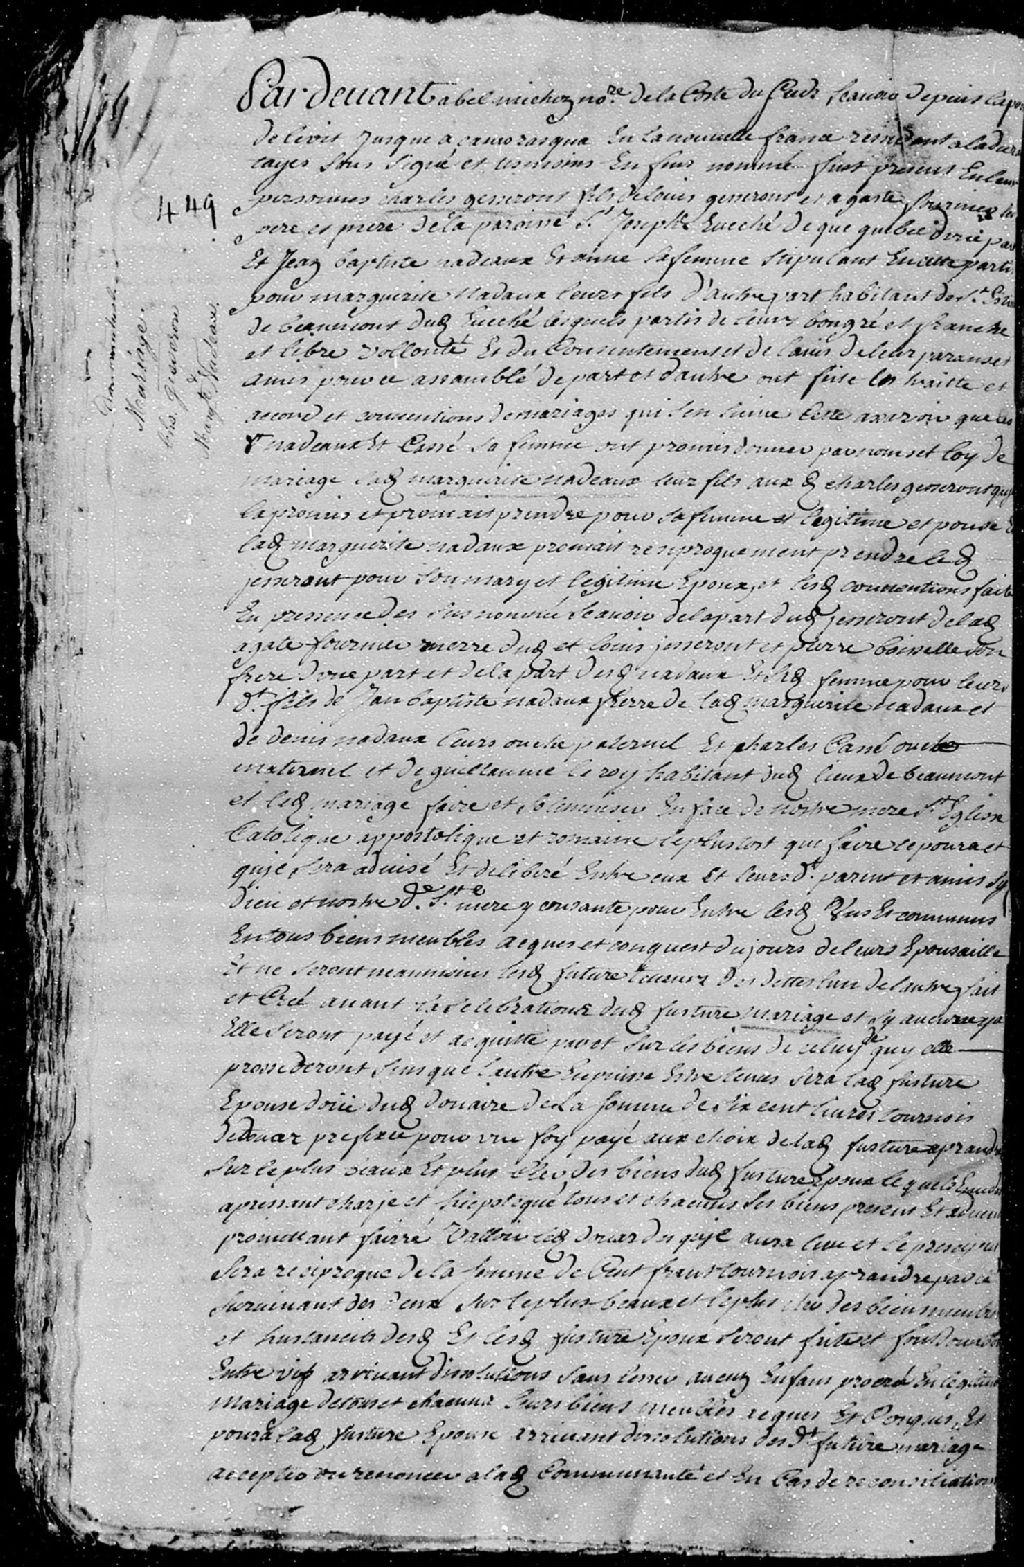 Par devant abel michon no.re de la Coste du Sud Scavoir depuis
de levis Jusque à camorasqua En la nouvelle france resident a la
sous signé et temoins En fin nommé furt present En leur
personnes charles genseront fils de louis genseront et agaste fournier
449
pere et mere de la paroisse St Joseph Eveché de que quebec
Et Jean baptiste nadeaux Et anne sa femme stipulant En cette parti
pour marguerite Nadaux leurs fils d'autre part habitant de St
de beaumont dud Eveché lesquels partis de leurs bongré et franche
et libre vollonté Et du Consentement et de l'avis de leur parans et
amis pour ce assemblé de part et d'autre ont faite les traitte et
acord et conventions de mariages qui s'en suive Cette a scavoir que les
nadeaux Et Cassé sa femme ont promis donner par nom et loy de
mariage lad marguerite nadeaux leur fils aux d charles genseront
la promis et promais prendre pour sa femme et legitime epouse
lad marguerite nadaux promait resiproquement prendre led
jenseront pour son mary et legitime Epoux et lesd conventions fait
En presence des sus nommé scavoir de la part dud jenseront de lad
agate fournier merre dud et louis jenseront et pierre boisselle son
frere d'une part et de la part desd nadaux Et sad femme pour leurs
dt fils de Jean baptiste nadaux frerre de lad marguerite nadaux et
de denis nadaux leurs oncle paternel Et charles Cassé oncle
maternel et de guillaume le roy habitant dud lieux de beaumont
et led mariage faire et solemniser En face de nostre mere Ste Eglise
Catolique appostolique et romaine le plustost que faire ce poura et
quil sera advisé Et deliberé Entre eux Et leurs dt parent et amis sy
Dieu et nostre de Ste mere y consante pour Entre lesd
En tous biens meubles acques et conquest du jours de leurs Epousaille
Et ne seront neanmoins lesd future tenus des dettes l'un de l'autre fait
et Creé avant la selebrations dud future mariage et sy aucune y a
Elle seront payé et acquitté par et sur les biens de celuy de quy elle
prosederont sans que l'autre En puisse Estre tenus sera lad future
Epouse doüé dud douaire de la somme de six cent livres tournois
de douar prefixe pour une foy payé aux choix de lad future aprandre
sur le plus beaux Et plus cler des biens dud future Epoux le quel
apressant charje et hiepoteque tous et chacuns ses biens present Et advenir
promettant fairre valloir led douar du quil aura lieu et le preciput
sera resiproque de la somme de Cent frans tournois aprandre par le
survivant des deux sur le plus beaux et le plus cler des bien meuble
et hustancile desd Et lesd future Epoux seront faite et font donation
Entre vif arrivant disolutions sans lesser aucuns Enfans procréé En legitime
mariage de tous et chacuns leurs biens meubles acques Et Conquis Et
poura lad future Epouse arrivant disolutions des dt future mariage
accepter ou renoncer a lad Communauté et En Cas de
Mariage
Chs. Gienseron
&
Margte. Nadeau